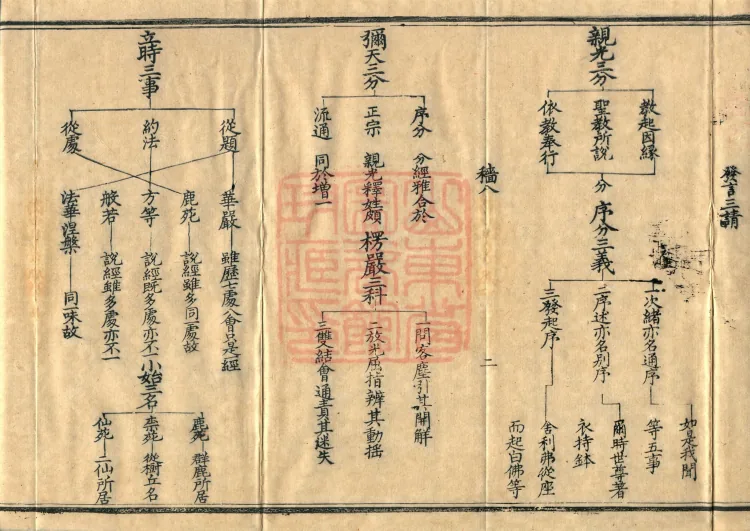 發言三請
親光三分
教起因緣
聖教所說
依教奉行
分
序分三義
一次緒亦名通序
如是我聞
等五事
二序述亦名別序
爾時世尊著
衣持鉢
三發起序
舍利弗從座
而起白佛等
穡八
二
彌天三分
序分 分經雅合於
正宗 親光釋姓頗
流通 同於增一
楞嚴三科
一問客塵引其開解
二放光屈指辨其動搖
三雙結會通責其迷失
立時三事
從題
約法
從處
華嚴 雖歷七處八會只是一經
鹿苑 說經雖多同一處故
方等 說經既多處亦不一
般若 說經雖多處亦不一
法華涅槃 同一味故
小始三名
鹿苑 群鹿所居
柰苑 從樹立名
仙苑 二仙所居